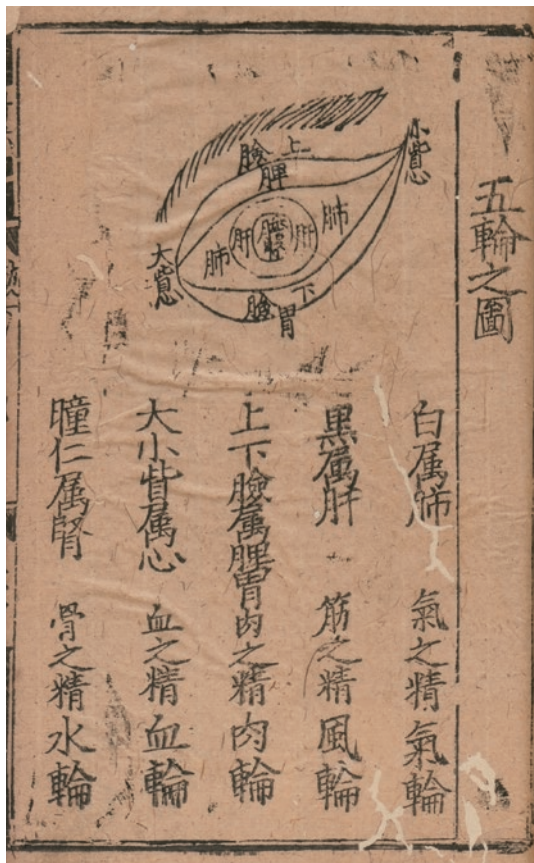 五輪之圖
小眥心
上
臉
脾
肺
肝
腎
肝
肺
大眥心
下
臉
胃
白属肺 氣之精氣輪
黒属肝 筋之精風輪
上下臉属脾胃肉之精肉輪
大小眥属心 血之精血輪
瞳仁属腎 骨之精水輪